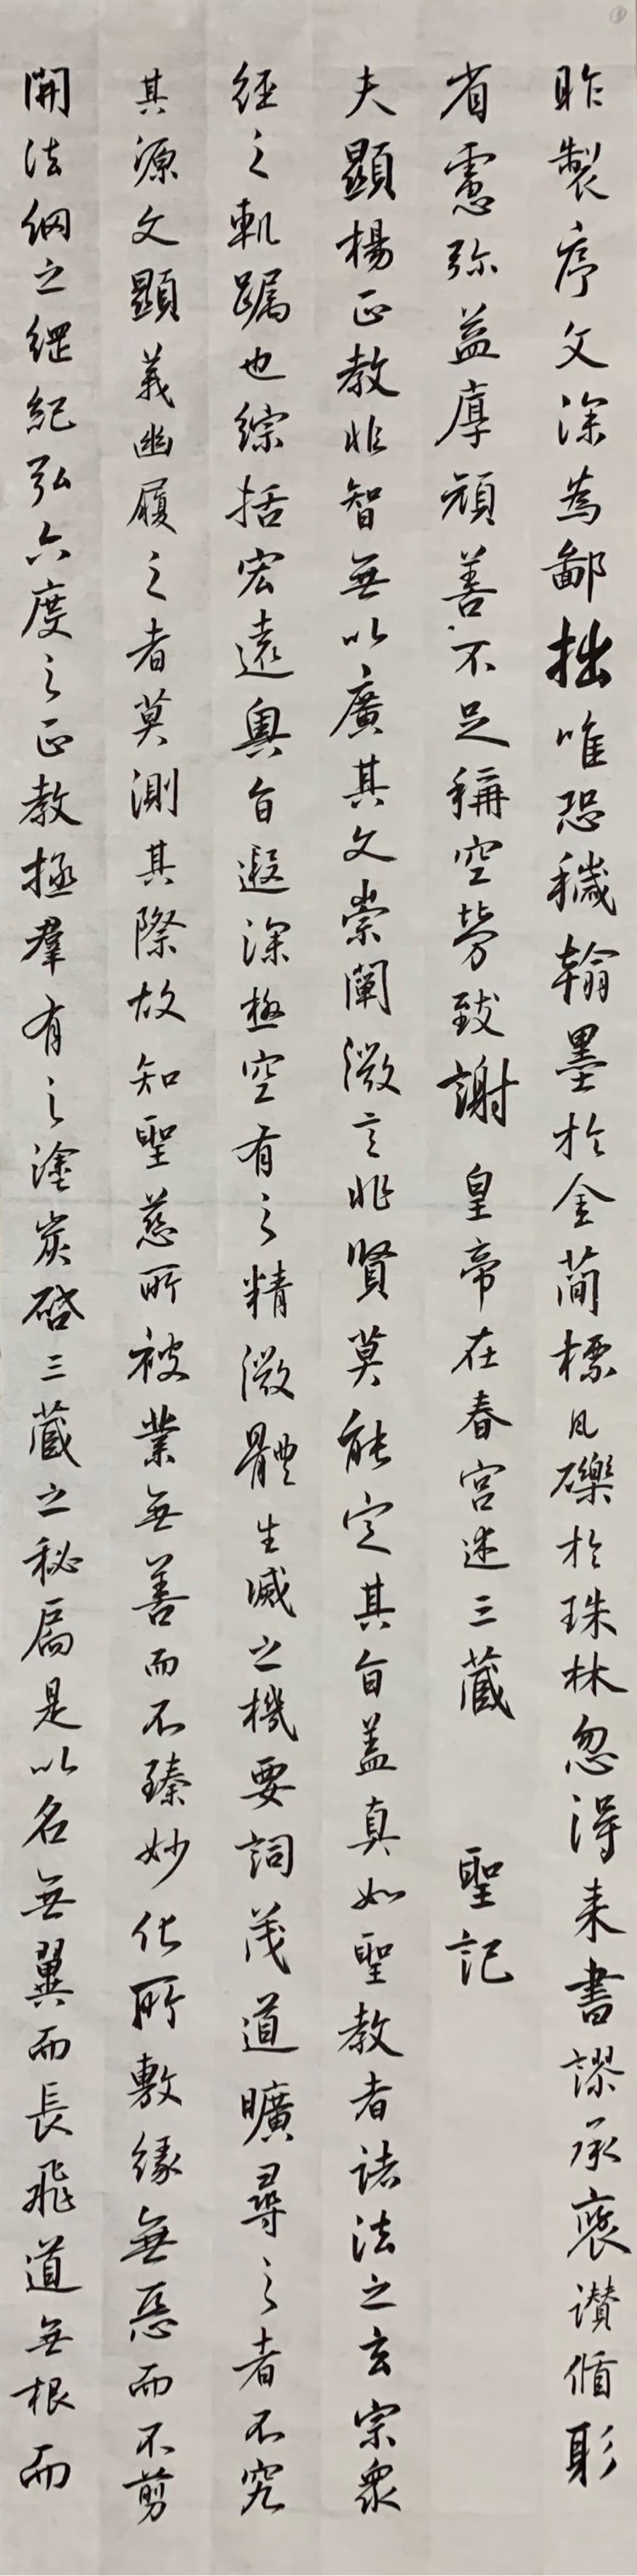 昨製序文深為鄙拙唯恐穢翰墨於金蕳標凡礫於珠林忽得来書謬承褒讃循躬
省慮弥益厚顔善不足稱空勞致謝 皇帝在春宮述三藏 聖記
夫顯楊正教非智無以廣其文崇闡微言非賢莫能定其旨盖真如聖教者諸法之玄宗衆
經之軌躅也綜括宏遠奥旨遐深極空有之精微體生滅之機要詞茂道曠尋之者不究
其源文顯義幽履之者莫測其際故知聖慈所被業無善而不臻妙化所敷緣無惡而不剪
開法網之綱紀弘六度之正教拯羣有之塗炭啓三藏之秘扃是以名無翼而長飛道無根而